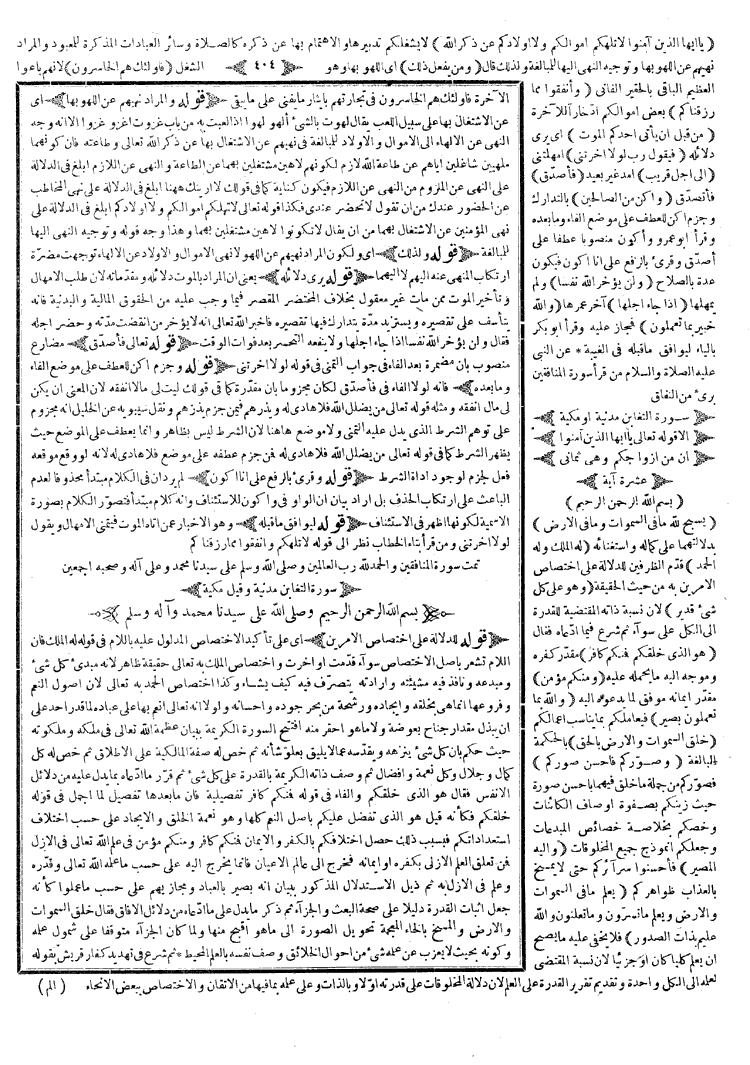 ( ياايها الذين آمنوا لاتلهكم اموالكم ولااولادكم عن ذكرالله ) لايشغلكم تدبيرها والاهتمام بها عن ذكره كالصلاة وسائر العبادات المذكرة للمعبود والمراد
نهيهم عن اللهو بها وتوجيه النهى اليها للمبالغة ولذلك قال ( ومن يفعل ذلك ) اى اللهو بها وهو ﴿ ٤٠٤ ﴾ الشغل ( فاولئك هم الخاسرون ) لانهم باعوا
العظيم الباقى بالحقير الفانى ( وأنفقوا مما
رزقناكم ) بعض اموالكم ادخارا للآخرة
( من قبل ان يأتى احدكم الموت ) اى يرى
دلائله ( فيقول رب لولا اخرتنى ) امهلتنى
( الى اجل قريب ) امد غير بعيد ( فأصدّق )
فأتصدّق ( واكن من الصالحين ) بالتدارك
وجزم اكن للعطف على موضع الفاء ومابعده
وقرأ ابوعمرو وأكون منصوبا عطفا على
أصدّق وقرئ بالرفع على انا اكون فيكون
عدة بالصلاح ( ولن يؤخر الله نفسا ) ولم
يمهلها ( اذا جاء اجلها ) آخر عمرها ( والله
خبير بما تعملون ) فمجاز عليه وقرأ ابوبكر
بالياء ليوافق ماقبله فى الغيبة * عن النبى
عليه الصلاة والسلام من قرأ سورة المنافقين
برئ من النفاق
﴿ سورة التغابن مدنية او مكية ﴾
﴿ الاقوله تعالى ياأيها الذين آمنوا ﴾
﴿ ان من ازواجكم وهى ثمانى ﴾
﴿ عشرة آية ﴾
( بسم الله الرحمن الرحيم )
( يسبح لله مافى السموات ومافى الارض )
بدلالتهما على كماله واستغنائه ( له الملك وله
الحمد ) قدّم الظرفين للدلالة على اختصاص
الامرين به من حيث الحقيقة ( وهو على كل
شئ قدير ) لان نسبة ذاته المقتضية للقدرة
الى الكل على سوآء ثم شرع فيما ادّعاه فقال
( هو الذى خلقكم فمنكم كافر ) مقدّر كفره
وموجه اليه مايحمله عليه ( ومنكم مؤمن )
مقدّر ايمانه موفق لما يدعوه اليه ( والله بما
تعملون بصير ) فيعاملكم بما يناسب اعمالكم
( خلق السموات والارض بالحق ) بالحكمة
البالغة ( وصوّركم فاحسن صوركم )
فصوّركم من جملة ماخلق فيهما باحسن صورة
حيث زينكم بصفوة اوصاف الكائنات
وخصكم بخلاصة خصائص المبدعات
وجعلكم انموذج جميع المخلوقات ( واليه
المصير ) فأحسنوا سرآئركم حتى لايمسخ
بالعذاب ظواهركم ( يعلم مافى السموات
والارض ويعلم ماتسرّون وماتعلنون والله
عليم بذات الصدور ) فلايخفى عليه مايصح
ان يعلم كليا كان او جزئيا لان نسبة المقتضى
الآخرة فاولئك هم الخاسرون فى تجارتهم بايثار مايفنى على مايبقى ﴿ قوله والمراد نهيهم عن اللهو بها ﴾ اى
عن الاشتغال بها على سبيل اللعب يقال لهوت بالشئ ألهو لهوا اذا لعبت به من باب غزوت اغزو غزوا الاانه وجه
النهى عن الالهاء الى الاموال والاولاد للمبالغة فى نهيهم عن الاشتغال بها عن ذكر الله تعالى وطاعته فان كونهما
ملهيين شاغلين اياهم عن طاعة الله لازم لكونهم لاهين مشتغلين بهما عن الطاعة والنهى عن اللازم ابلغ فى الدلالة
على النهى عن الملزوم من النهى عن اللازم فيكون كناية كمافى قولك لاارينك ههنا ابلغ فى الدلالة على نهى المخاطب
عن الحضور عندك من ان تقول لاتحضر عندى فكذا قوله تعالى لاتلهكم اموالكم ولااولادكم ابلغ فى الدلالة على
نهى المؤمنين عن الاشتغال بهما من ان يقال لاتكونوا لاهين مشتغلين بهما وهذا وجه قوله وتوجيه النهى اليها
للمبالغة ﴿ قوله ولذلك ﴾ اى ولكون المراد نهيهم عن اللهو لانهى الاموال والاولاد عن الالهاء توجهت مضرّة
ارتكاب المنهى عنه اليهم لااليهما ﴿ قوله يرى دلائله ﴾ يعنى ان المراد بالموت دلائله ومقدّماته لان طلب الامهال
وتأخير الموت ممن مات غير معقول بخلاف المحتضر المقصر فيما وجب عليه من الحقوق المالية والبدنية فانه
يتأسف على تقصيره ويستزيد مدّة يتدارك فيها تقصيره فاخبر الله تعالى انه لايؤخر من انقضت مدّته وحضر اجله
فقال ولن يؤخر الله نفسا اذا جاء اجلها ولاينفعه التحسر بعد فوات الوقت ﴿ قوله تعالى فأصدّق ﴾ مضارع
منصوب بان مضمرة بعد الفاء فى جواب التمنى فى قوله لولا اخرتنى ﴿ قوله وجزم اكن للعطف على موضع الفاء
ومابعده ﴾ فانه لولا الفاء فى فأصدّق لكان مجزوما بان مقدّرة كمافى قولك ليت لى مالا انفقه لان المعنى ان يكن
لى مال انفقه ومثله قوله تعالى من يضلل الله فلاهادى له ويذرهم فيمن جزم يذرهم ونقل سيبويه عن الخليل انه مجزوم
على توهم الشرط الذى يدل عليه التمنى ولاموضع هاهنا لان الشرط ليس بظاهر وانما يعطف على الموضع حيث
يظهر الشرط كمافى قوله تعالى من يضلل الله فلاهادى له فمن جزم عطفه على موضع فلاهادى له لانه لو وقع موقعه
فعل لجزم لوجود اداة الشرط ﴿ قوله وقرئ بالرفع على انا اكون ﴾ لم يرد ان فى الكلام مبتدأ محذوفا لعدم
الباعث على ارتكاب الحذف بل اراد بيان ان الواو فى واكون للاستئناف وانه كلام مبتدأ فتصوّر الكلام بصورة
الاسمية لكونها اظهر فى الاستئناف ﴿ قوله ليوافق ماقبله ﴾ وهو الاخبار عمن اتاه الموت فيتمنى الامهال ويقول
لولا اخرتنى ومن قرأ بتاء الخطاب نظر الى قوله لاتلهكم وانفقوا مما رزقناكم
تمت سورة المنافقين والحمدلله رب العالمين وصلى الله وسلم على سيدنا محمد وعلى آله وصحبه اجمعين
﴿ سورة التغابن مدنية وقيل مكية ﴾
﴿ بسم الله الرحمن الرحيم وصلى الله على سيدنا محمد وآله وسلم ﴾
﴿ قوله للدلالة على اختصاص الامرين ﴾ اى على تأكيد الاختصاص المدلول عليه باللام فى قوله له الملك فان
اللام تشعر باصل الاختصاص سوآء قدّمت او اخرت واختصاص الملك به تعالى حقيقة ظاهر لانه مبدئ كل شئ
ومبدعه ونافذ فيه مشيئته وارادته يتصرّف فيه كيف يشاء وكذا اختصاص الحمد به تعالى لان اصول النعم
وفروعها انما هى بخلقه وايجاده ورشحة من بحر جوده واحسانه ولولا انه تعالى انعم بها على عباده لما قدر احد على
ان يبذل مقدار جناح بعوضة ولاماهو احقر منه افتتح السورة الكريمة ببيان عظمة الله تعالى فى ملكه وملكوته
حيث حكم بان كل شئ ينزهه ويقدّسه عمالايليق بعلوّ شأنه ثم خص له صفة المالكية على الاطلاق ثم خص له كل
كمال وجلال وكل نعمة وافضال ثم وصف ذاته الكريمة بالقدرة على كل شئ ثم قرّر ماادّعاه بمايدل عليه من دلائل
الانفس فقال هو الذى خلقكم والفاء فى قوله فمنكم كافر تفصيلية فان مابعدها تفصيل لما اجمل فى قوله
خلقكم فكأنه قيل هو الذى تفضل عليكم باصل النعم كلها وهو نعمة الخلق والايجاد على حسب اختلاف
استعداداتكم فبسبب ذلك حصل اختلافكم بالكفر والايمان فمنكم كافر ومنكم مؤمن فى علم الله تعالى فى الازل
فمن تعلق العلم الازلى بكفره او ايمانه فخرج الى عالم الاعيان فانما يخرج اليه على حسب ماعلمه الله تعالى وقدّره
وعلم فى الازل به ثم ذيل الاستدلال المذكور ببيان انه بصير بالعباد ومجاز يهم على حسب ماعملوا كأنه
جعل اثبات القدرة دليلا على صحة البعث والجزآء ثم ذكر مايدل على ماادّعاه من دلائل الآفاق فقال خلق السموات
والارض والمسخ بالخاء المعجمة تحويل الصورة الى ماهو اقبح منها ولما كان الجزآء متوقفا على شمول علمه
وكونه بحيث لايعزب عن علمه شئ من احوال الخلائق وصف نفسه بالعلم المحيط * ثم شرع فى تهديد كفار قريش بقوله
لعلمه الى الكل واحدة وتقديم تقرير القدرة على العلم لان دلالة المخلوقات على قدرته اوّلا وبالذات وعلى علمه بمافيها من الاتقان والاختصاص ببعض الانحاء ( الم )